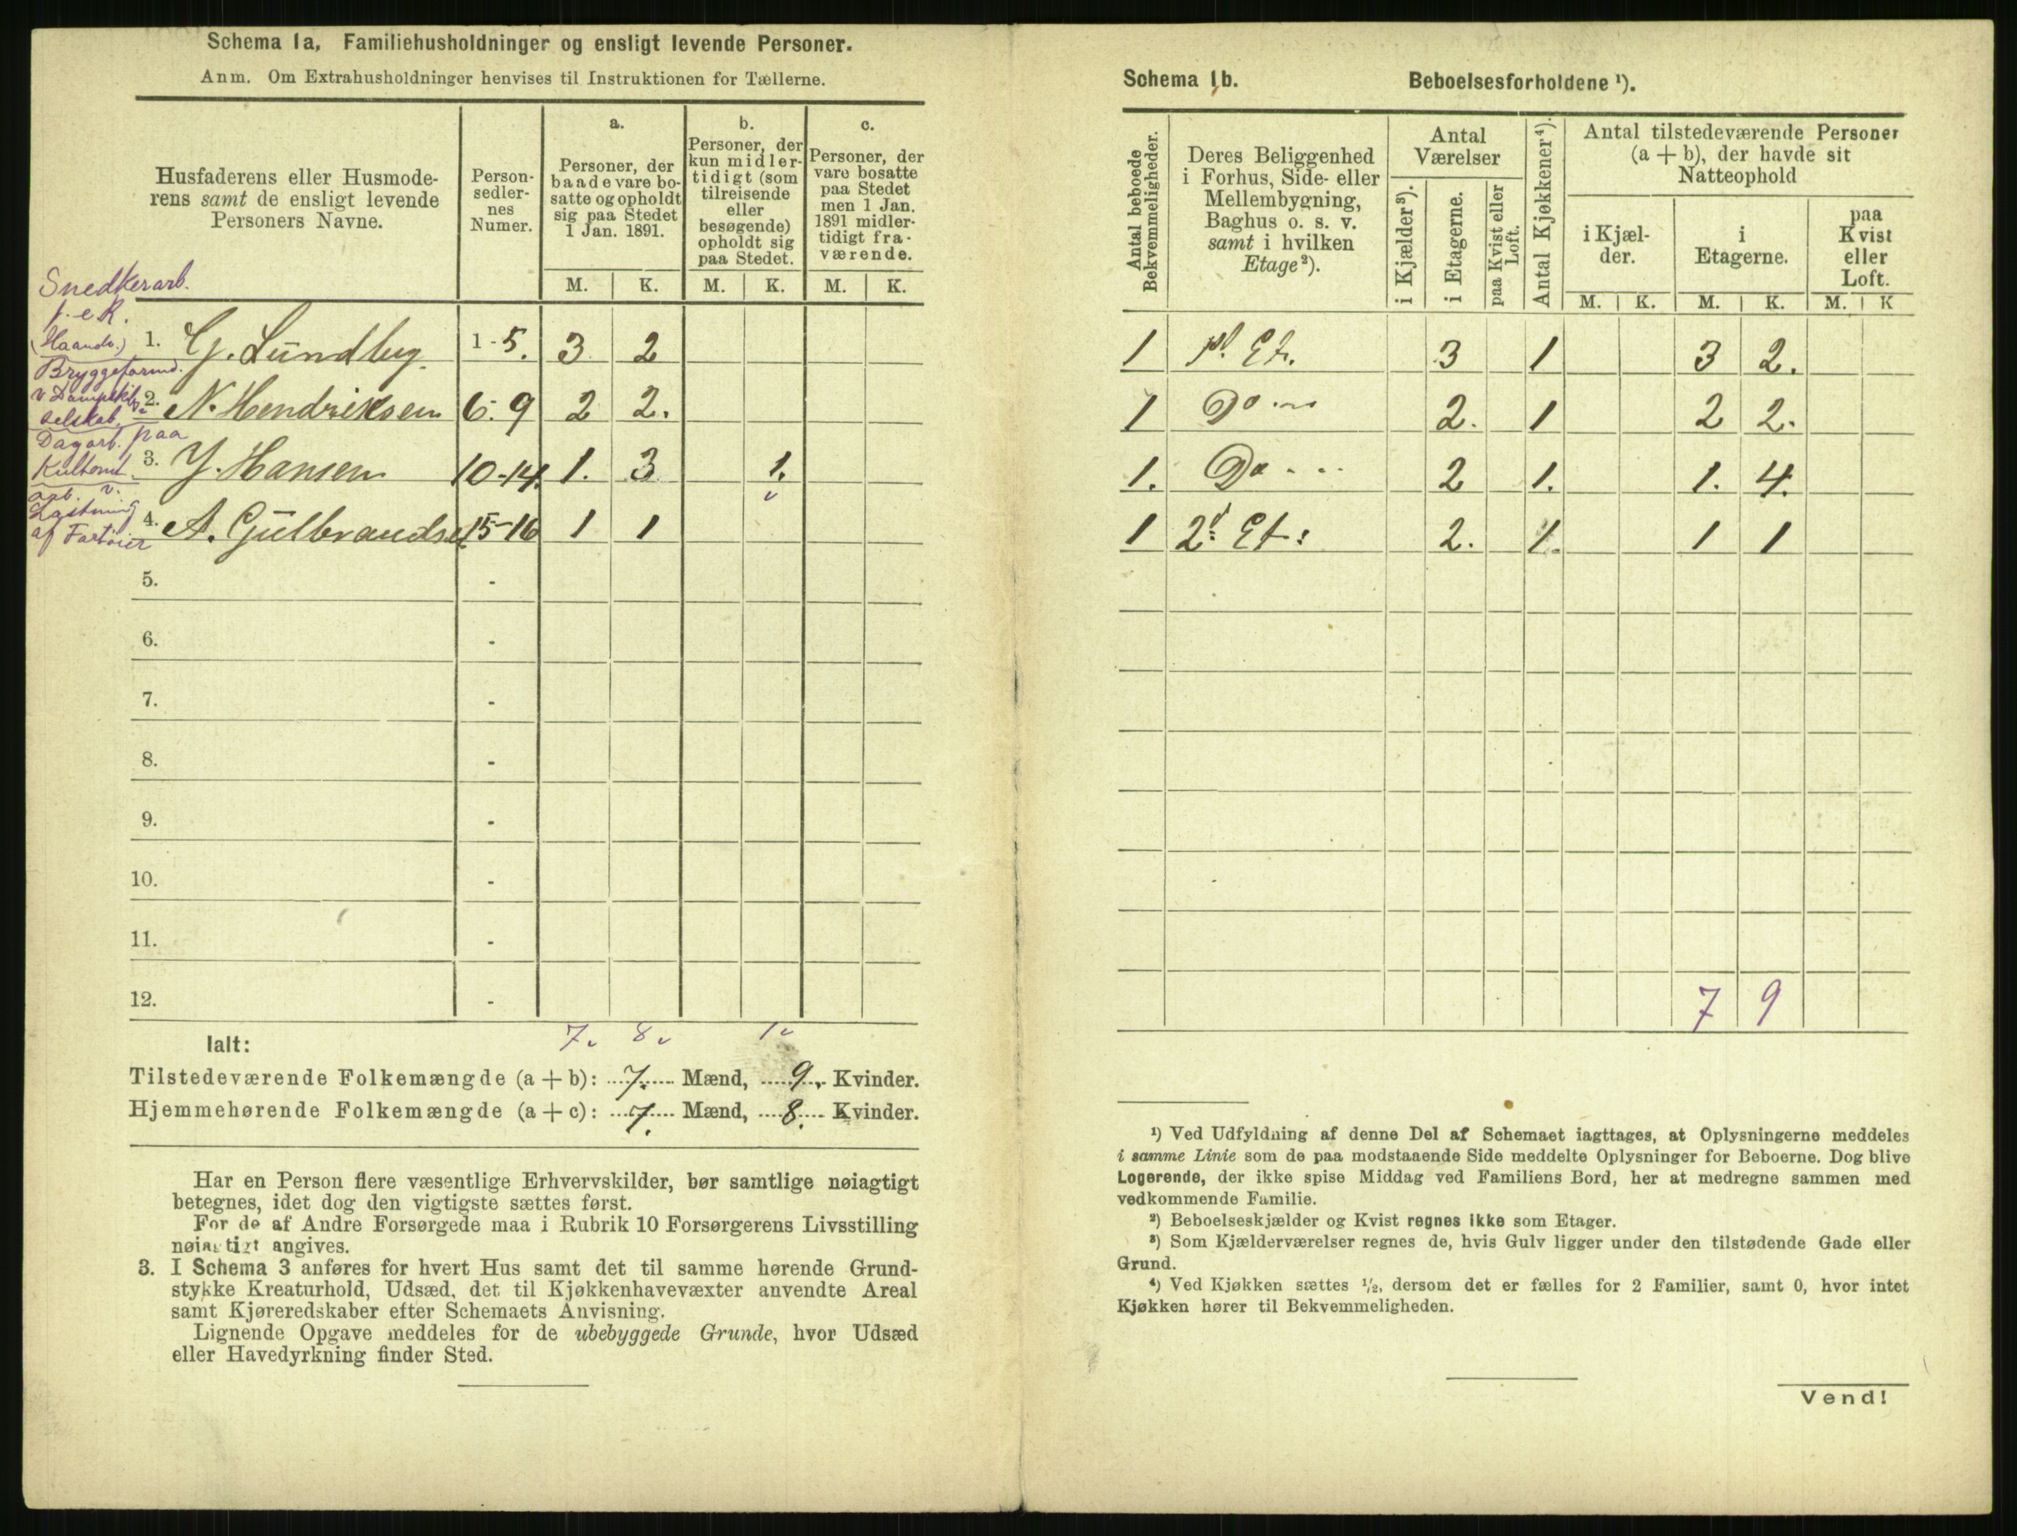 Schema 1a. Familiehusholdninger og ensligt levende Personer.
Anm. Om Extrahusholdninger henvises til Instruktionen for Tællerne.
Husfaderens eller Husmode-
rens samt de ensligt levende
Personers Navne.
Person-
sedler-
nes
Numer.
a.
Personer, der
baade vare bo-
satte og opholdt
sig paa Stedet
1 Jan. 1891.
b.
Personer, der
kun midler-
tidigt (som
tilreisende
eller
besøgende)
opholdt sig
paa Stedet.
c.
Personer, der
vare bosatte
paa Stedet
men 1 Jan.
1891 midler-
tidigt fra-
værende.
M. K. M. K. M. K.
Snedkerarb.
f. e R.
(Haandv.)
1. G. Lundbug. 1-5. 3 2
Bryggeformd.
v Dampskibs
selskab.
2. N. Hendriksen 6-9 2 2.
Dagarb. paa
Kultomt.
3. Y. Hansen 10-14. 1. 3 1.
arb. v.
Lastning
af Fartøier
4. A. Gulbrandse 15-16 1 1
5. -
6. -
7. -
8. -
9. -
10. -
11. -
12. -
7. 8. 1
Ialt:
Tilstedeværende Folkemængde (a + b): 7. Mænd, 9. Kvinder.
Hjemmehørende Folkemængde (a + c): 7. Mænd, 8. Kvinder.
Har en Person flere væsentlige Erhvervskilder, bør samtlige nøiagtigt
betegnes, idet dog den vigtigste sættes først.
For de af Andre Forsørgede maa i Rubrik 10 Forsørgerens Livsstilling
nøiagtigt angives.
3. I Schema 3 anføres for hvert Hus samt det til samme hørende Grund-
stykke Kreaturhold, Udsæd, det til Kjøkkenhavevæxter anvendte Areal
samt Kjøreredskaber efter Schemaets Anvisning.
Lignende Opgave meddeles for de ubebyggede Grunde, hvor Udsæd
eller Havedyrkning finder Sted.
Schema 1b. Beboelsesforholdene ¹).
Antal beboede
Bekvemmeligheder.
Deres Beliggenhed
i Forhus, Side- eller
Mellembygning,
Baghus o. s. v.
samt i hvilken
Etage²).
Antal
Værelser
i Kjælder³).
i Etagerne.
paa Kvist eller
Loft.
Antal Kjøkkener⁴).
Antal tilstedeværende Personer
(a + b), der havde sit
Natteophold
i Kjæl-
der.
i
Etagerne.
paa
Kvist
eller
Loft.
M. K. M. K. M. K
1 1ste Et. 3 1 3 2.
1 Do 2. 1 2 2.
1. Do 2 1. 1. 4.
1 2d Et: 2. 1. 1 1
7 9
¹) Ved Udfyldning af denne Del af Schemaet iagttages, at Oplysningerne meddeles
i samme Linie som de paa modstaaende Side meddelte Oplysninger for Beboerne. Dog blive
Logerende, der ikke spise Middag ved Familiens Bord, her at medregne sammen med
vedkommende Familie.
²) Beboelseskjælder og Kvist regnes ikke som Etager.
³) Som Kjælderværelser regnes de, hvis Gulv ligger under den tilstødende Gade eller
Grund.
⁴) Ved Kjøkken sættes ½, dersom det er fælles for 2 Familier, samt 0, hvor intet
Kjøkken hører til Bekvemmeligheden.
Vend!